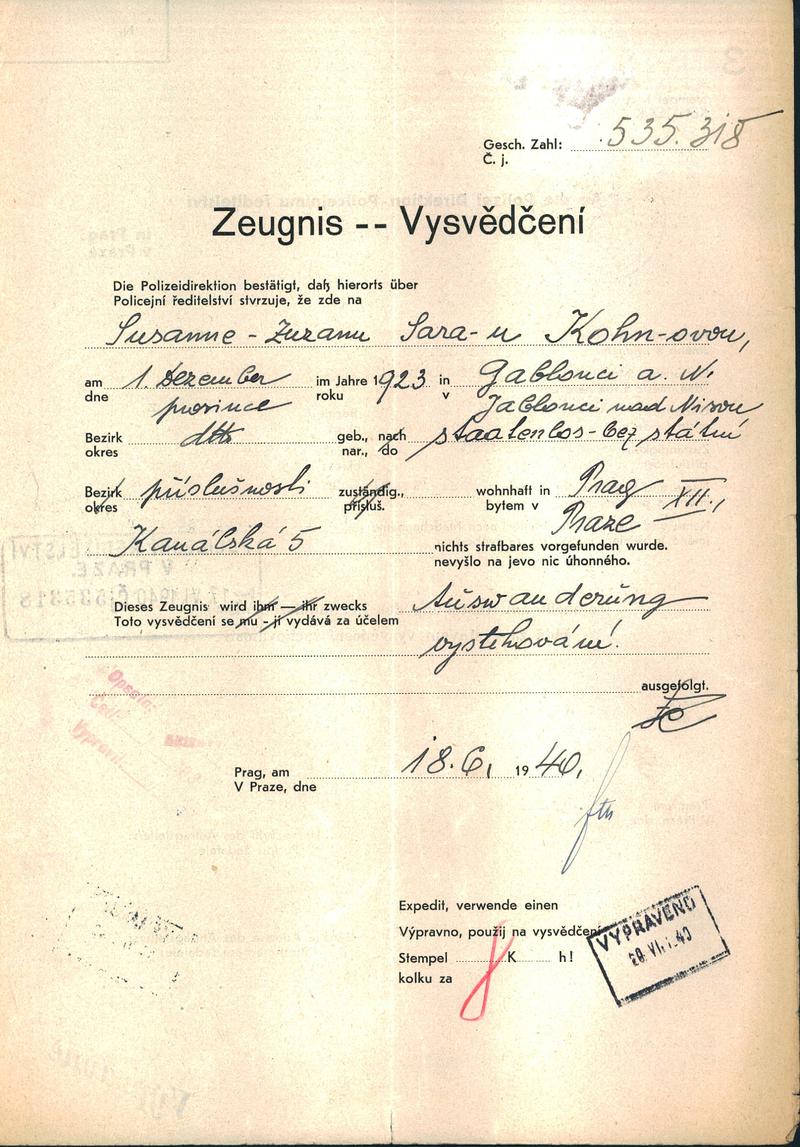 Gesch. Zahl: 535.318
Č. j.
Zeugnis -- Vysvědčení
Die Polizeidirektion bestätigt, daß hierorts über
Policejní ředitelství stvrzuje, že zde na
Susanne - Zuzanu Sara-u Kohn-ovou,
am 1. Dezember im Jahre 1923 in Gablonci a. N.
dne prosince roku v Jablonci nad Nisou
Bezirk dtto geb., nach staatenlos - bez státní
okres nar., do
Bezirk příslušnosti zuständig., wohnhaft in Prag XII.,
okres přísluš. bytem v Praze
Kanálská 5 nichts strafbares vorgefunden wurde.
nevyšlo na jevo nic úhonného.
Dieses Zeugnis wird ihm — ihr zwecks Auswanderung
Toto vysvědčení se mu - jí vydává za účelem
vystěhování.
ausgefolgt.
Prag, am 18.6. 1940.
V Praze, dne
Expedit, verwende einen
Výpravno, použij na vysvědčení
Stempel K h!
kolku za
VYPRAVENO
Opsala:
Četl:
Vypravil: